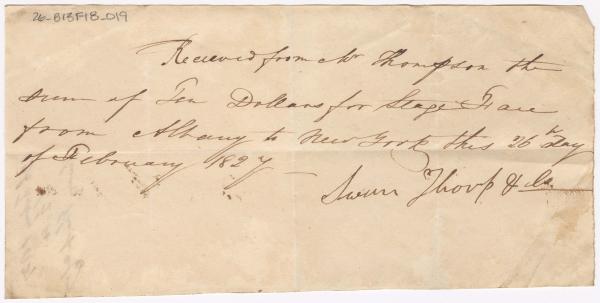 26-B13F18-019
Received from Mr Thompson the
sum of Ten Dollars for Stage Fare
from Albany to New York this 26th Day
of February 1827
Thorp & Co